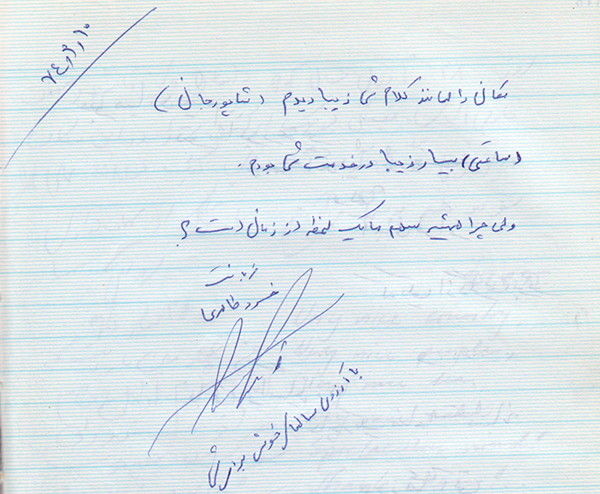 ۷۴/۲/۱۰
مکان را همانند کلام شما زیبا دیدم (شاپور جان)
(ساعتی) بسیار زیبا در خدمت شما بودم.
ولی چرا همیشه سهم ما یک لحظه از زمان است؟
قربانت
خسرو طاهری
با آرزوی سالهای خوش برای شما